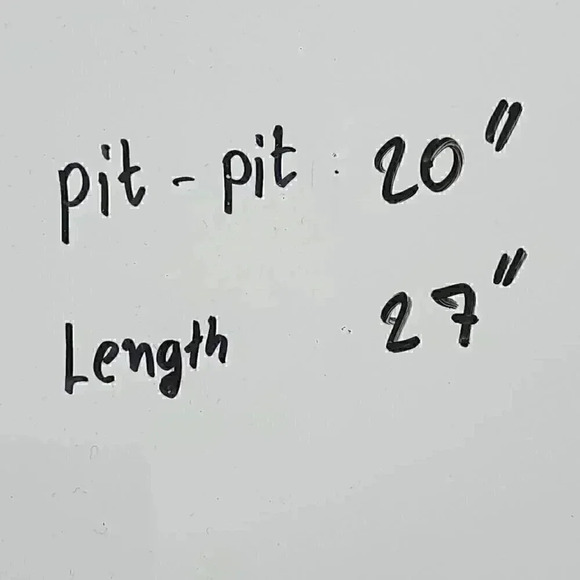 pit - pit : 20"
Length : 27"